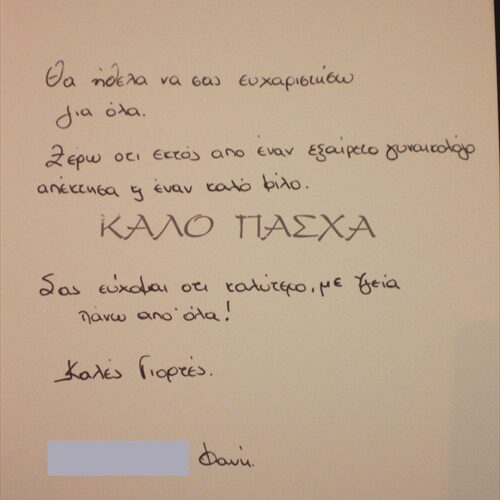 Θα ήθελα να σας ευχαριστήσω
για όλα.
Ξέρω οτι εκτός απο έναν εξαίρετο γυναικολόγο
απέκτησα ϗ έναν καλό φίλο.
ΚΑΛΟ ΠΑΣΧΑ
Σας εύχομαι οτι καλύτερο, με υγεία
πάνω απ' όλα!
Καλές Γιορτές.
Φανή.